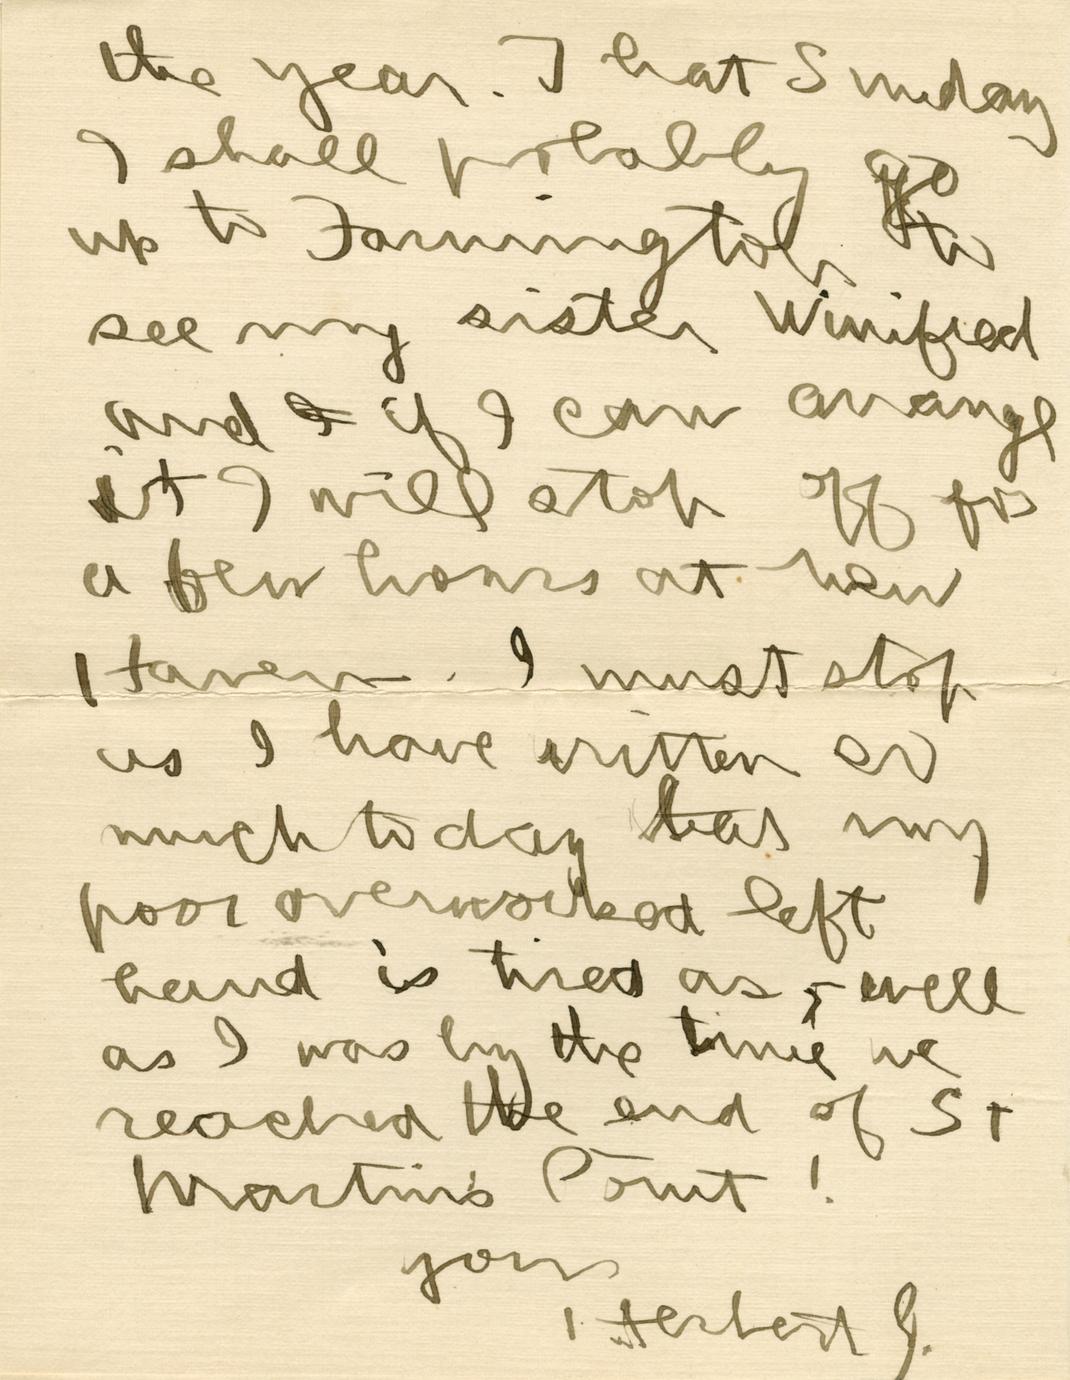 the year. That Sunday
I shall probably go
up to Farmington to
see my sister Winifred
and if I can arrange
it I will stop off for
a few hours at New
Haven. I must stop
as I have written so
much today that my
poor overworked left
hand is tired as well
as I was by the time we
reached the end of St
Martin's Point!
yours
Herbert J.